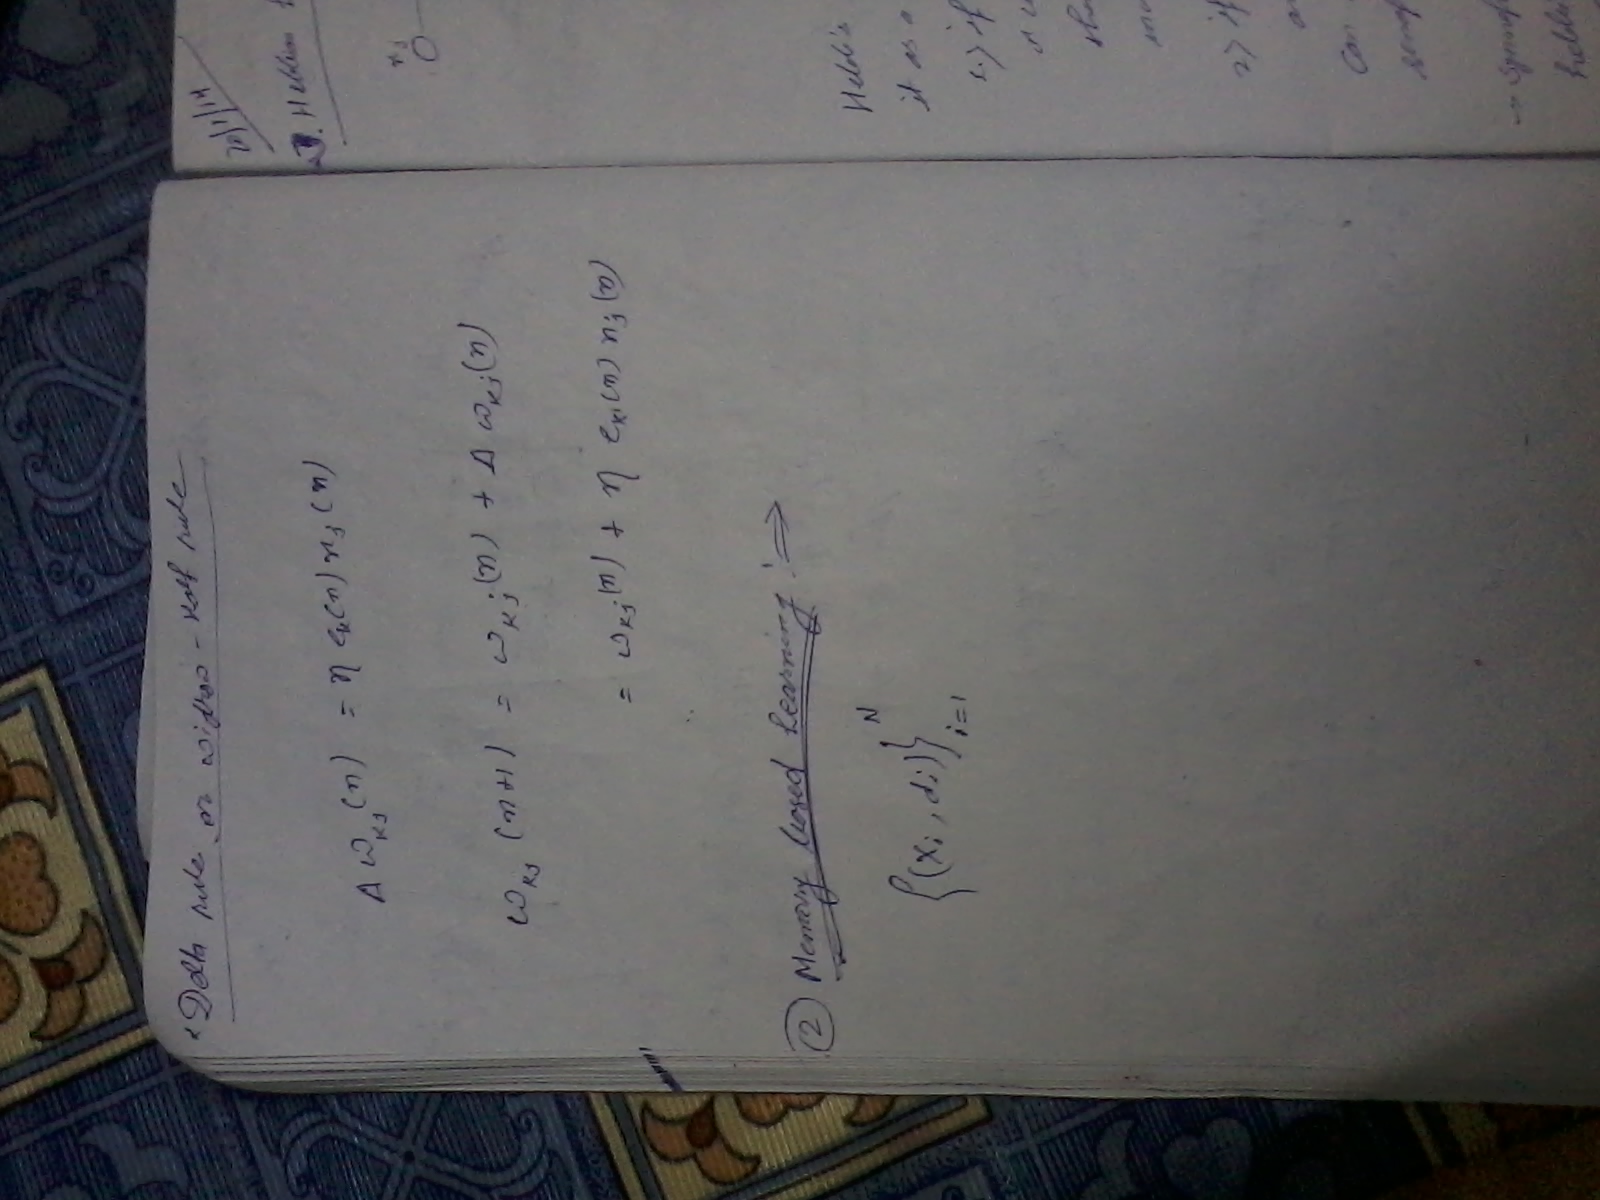 * Delta rule or widrow-Hoff rule
Δ ω_kj (n) = η e_k(n) x_j (n)
ω_kj (n+1) = ω_kj (n) + Δ ω_kj (n)
= ω_kj (n) + η e_k (n) x_j (n)
② Memory based learning :⇒
{(x_i , d_i)}^N_i=1
Hebbian
x_j
Hebb's
it as a
1) if
2) if
can